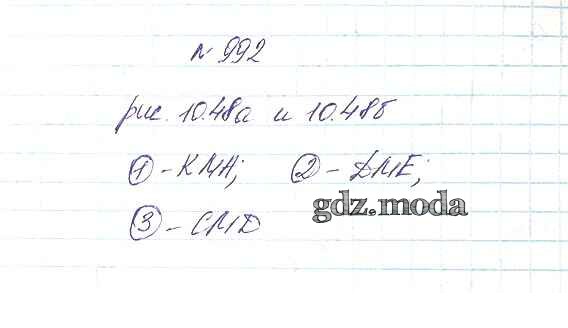 № 992
рис. 10.48а и 10.48б
① - КМН; ② - DME;
gdz.moda
③ - CMD